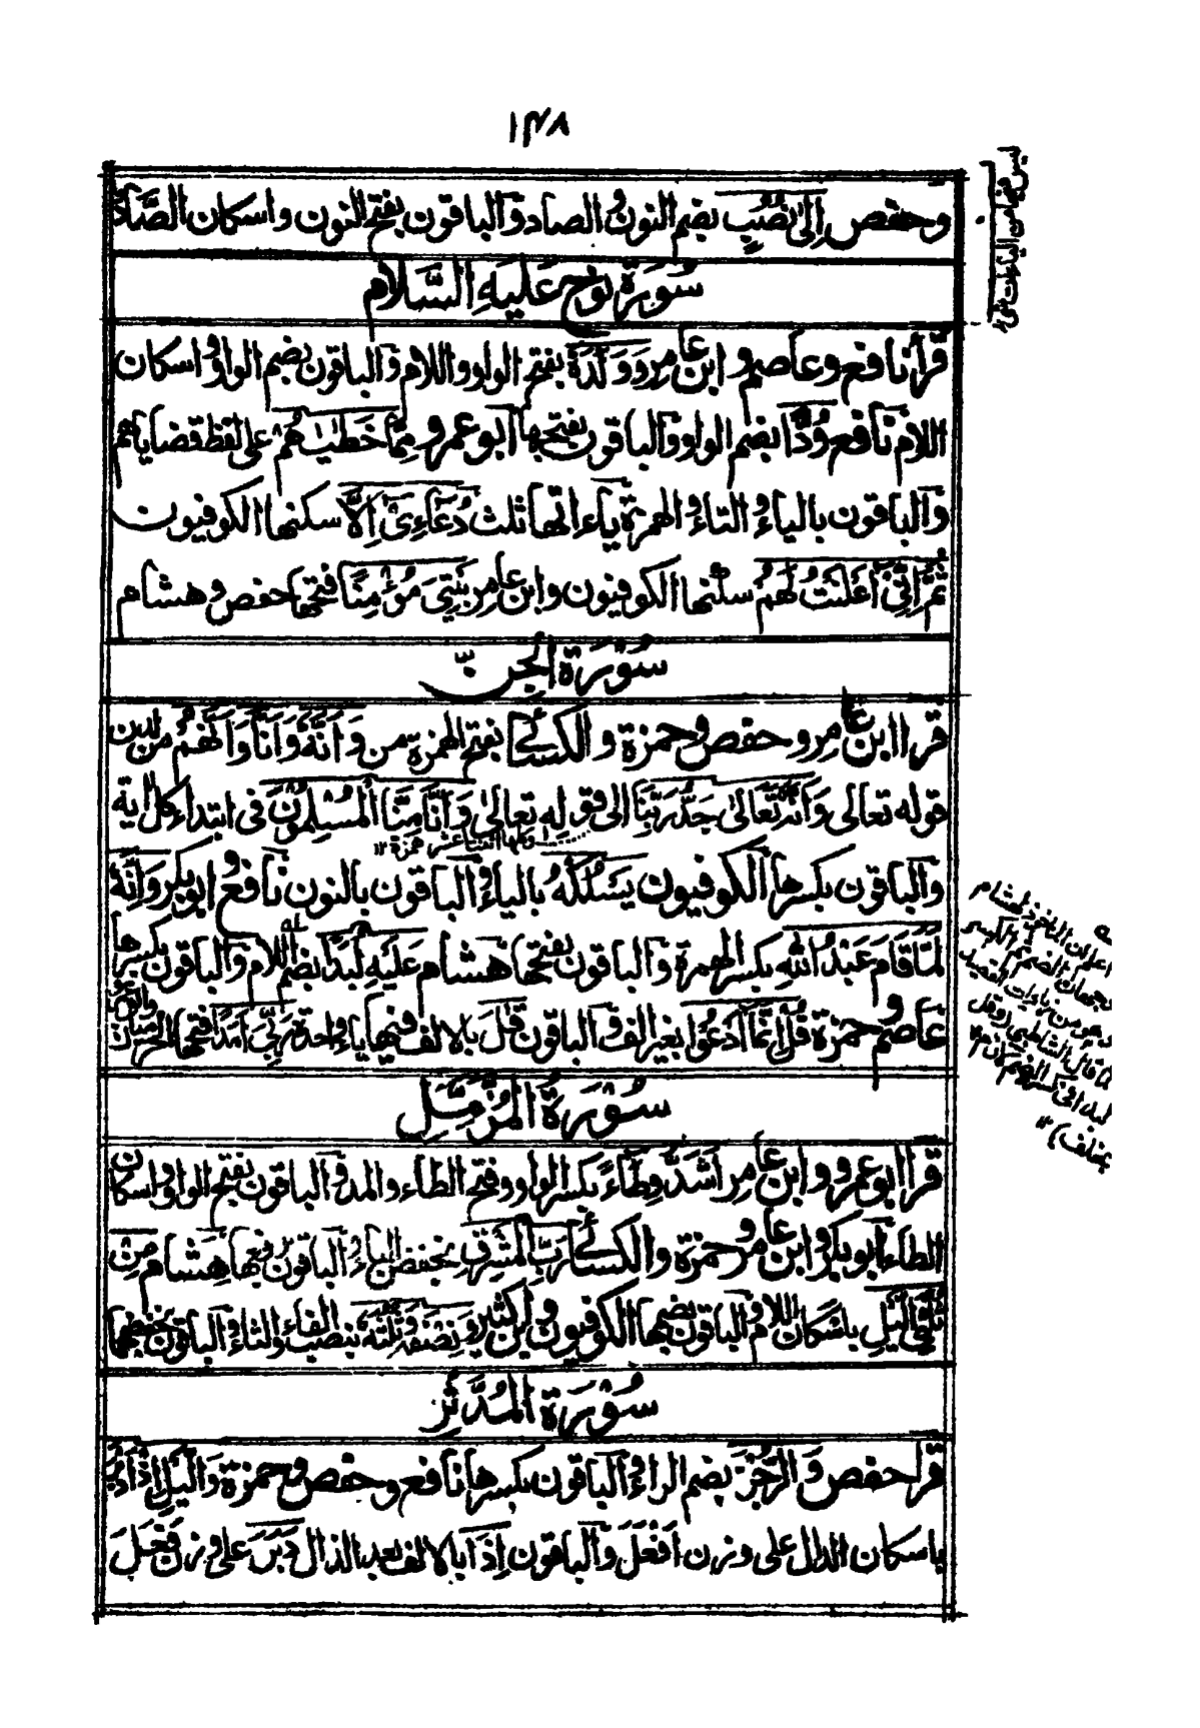 ١٤٨
وحفص إِلىٰ نُصُبٍ بضم النون والصاد والباقون بفتح النون واسكان الصَّاد
ليس فيها من الياءات شئ
سُورَة نوح عَلَيهِ السَّلام
قرأ نافع وعاصم وابن عامر وَوَلَدُهٗ بفتح الواو واللام والباقون بضم الواو واسكان
اللام نافع وُدًّا بضم الواو والباقون بفتحها ابو عمرو مِمَّا خَطٰيٰهُمْ على لفظ قضاياهم
والباقون بالياء والتاء والهمزة ياءاتها ثلث دُعَآءِىْٓ اِلَّا سكنها الكوفيون
ثُمَّ اِنِّىْٓ اَعْلَنْتُ لَهُمْ سكنها الكوفيون وابن عامر بَيْتِىَ مُؤْمِنًا فتحها حفص وهشام
سُوْرَة الجِنّ
قرا ابن عامر وحفص وحمزة والكسائى بفتح الهمزة من وَاَنَّهٗ وَاَنَّا وَاَنَّهُمْ من لدن
قوله تعالى وَاَنَّهٗ تَعَالىٰ جَدُّ رَبِّنَا الى قوله تعالى وَاَنَّا مِنَّا الْمُسْلِمُوْنَ فى ابتداء كل اية
وجملتها اثنتا عشر همزة ١٢
والباقون بكسرها الكوفيون يَسْلُكْهُ بالياء والباقون بالنون نافع وابو بكر وَاِنَّهٗ
لَمَّا قَامَ عَبْدُ اللهِ بكسر الهمزة والباقون بفتحها هشام عَلَيْهِ لُبَدًا بضم اللام والباقون بكسرها
عاصم وحمزة قُلْ اِنَّمَآ اَدْعُوْا بغير الف والباقون قَالَ بالالف فيها ياء واحدة رَبِّىٓ اَمَدًا فتحها الحرميان وابو عمرو
سُوْرَةُ المُزَّمِّل
قرا ابو عمرو وابن عامر اَشَدُّ وِطَآءً بكسر الواو وفتح الطاء والمد والباقون بفتح الواو واسكان
الطاء ابو بكر وابن عامر وحمزة والكسائى رَبِّ الْمَشْرِقِ بخفض الباء والباقون برفعها هشام مِنْ
ثُلْثَىِ الَّيْلِ باسكان اللام والباقون بضمها الكوفيون وابن كثير وَنِصْفَهٗ وَثُلُثَهٗ بنصب الفاء والثاء والباقون بخفضهما
سُوْرَةُ المُدَّثِّر
قرا حفص وَالرُّجْزَ بضم الراء والباقون بكسرها نافع وحفص وحمزة وَالَّيْلِ اِذْ اَدْبَرَ
باسكان الذال على وزن اَفْعَلَ والباقون اِذَا بالالف بعد الذال دَبَرَ على وزن فَعَلَ